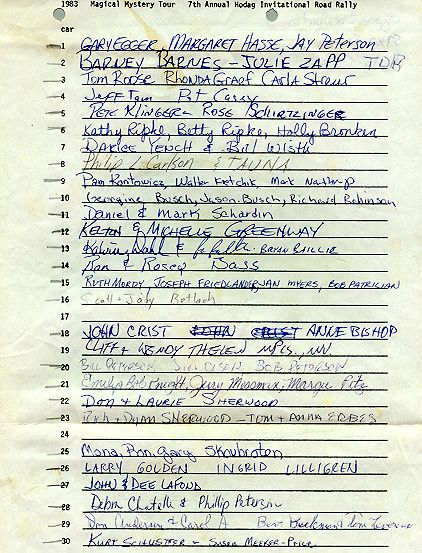 1983 Magical Mystery Tour 7th Annual Hodag Invitational Road Rally
car
1 GARY EGGER, MARGARET HASSE, JAY Peterson
2 BARNEY BARNES - JULIE ZAPP TDB
3 Tom Roose Rhonda Graef Carla
4 Jeff Tom Pat Casey
5 PETE KLINGER & ROSE
6 Kathy Ripke, Betty Ripke, Holly Bronken
7 Darlee & Bill Wisth
8 Philip L Carlson &
9 Pam Walter Mark
10 Georgine Busch, Jason Busch, Richard Robinson
11 Daniel & Mark Schardin
12 KELTON & MICHELLE GREENWAY
13 & BRYAN BAILLIE
14 & Rosey Dass
15 RUTH MORDY, JOSEPH FRIEDLANDER, JAN MYERS, BOB PATRICIAN
16 Scott & Jody
17
18 JOHN CRIST JOHN CRIST ANNE BISHOP
19 CLIFF & WENDY THELEN MPLS., MN.
20 BILL PETERSON, JILL OLSON, BOB PETERSON
21 Bob Jerry Margie
22 DON & LAURIE SHERWOOD
23 Rich & DYAN SHERWOOD - TOM & ANNA ERBES
24
25 Mona, Ron, Gary Skoubroten
26 LARRY GOLDEN INGRID LILLIGREN
27 JOHN & DEE LAFOND
28 Debra & Phillip Peterson
29 Don Anderson & Carol A
30 KURT SCHUSTER - SUSAN MEEKER-PRICE